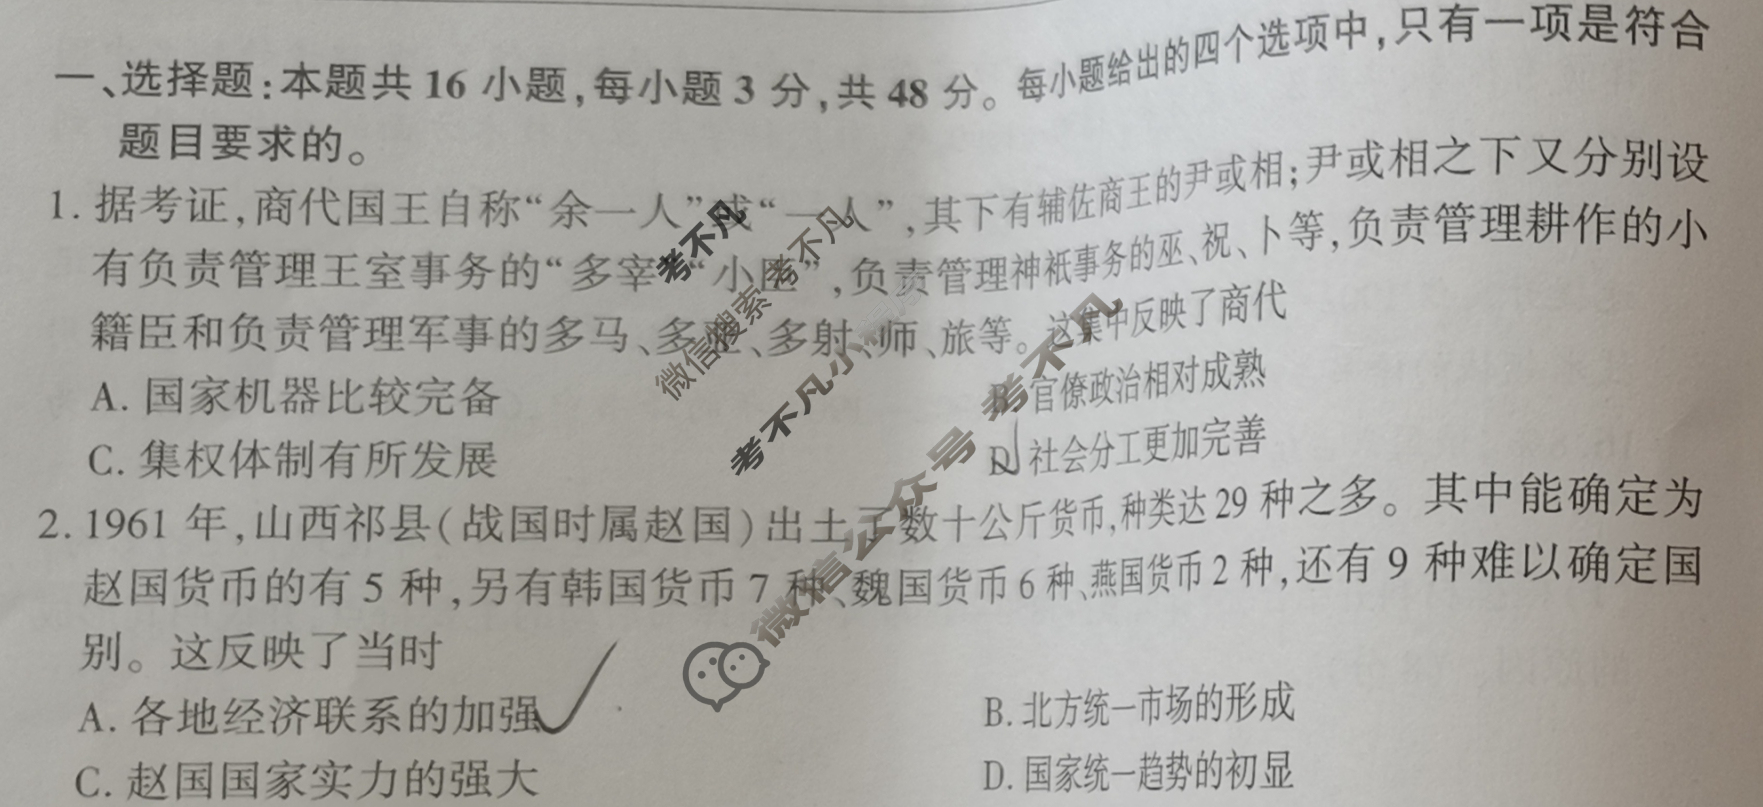 一、选择题:本题共 16 小题,每小题 3 分,共 48 分。每小题给出的四个选项中,只有一项是符合
题目要求的。
1. 据考证,商代国王自称“余一人”或“一人”,其下有辅佐商王的尹或相;尹或相之下又分别设
有负责管理王室事务的“多宰”“小臣”,负责管理神祇事务的巫、祝、卜等,负责管理耕作的小
籍臣和负责管理军事的多马、多、多射、师、旅等。这集中反映了商代
A. 国家机器比较完备
B. 官僚政治相对成熟
C. 集权体制有所发展
D. 社会分工更加完善
2. 1961 年,山西祁县(战国时属赵国)出土了数十公斤货币,种类达 29 种之多。其中能确定为
赵国货币的有 5 种,另有韩国货币 7 种、魏国货币 6 种、燕国货币 2 种,还有 9 种难以确定国
别。这反映了当时
A. 各地经济联系的加强
B. 北方统一市场的形成
C. 赵国国家实力的强大
D. 国家统一趋势的初显
考不凡
微信搜索 考不凡
考不凡小
微信公众号 考不凡